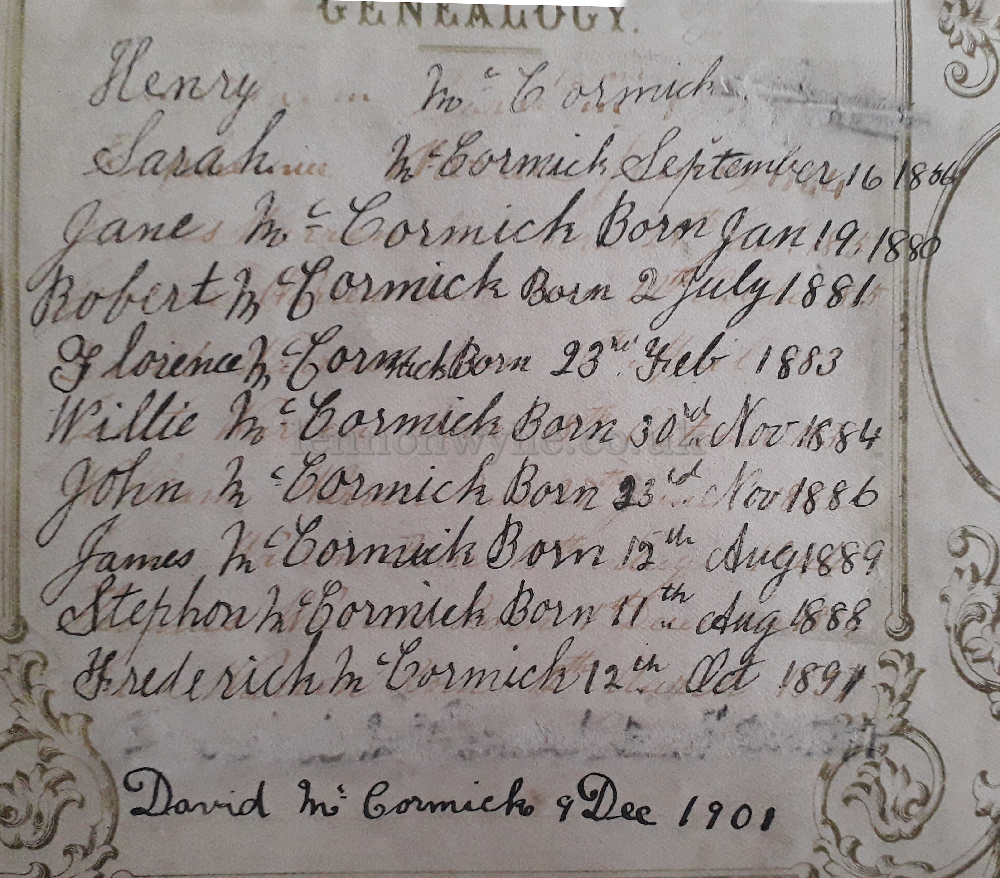 GENEALOGY.
Henry McCormick
Sarah McCormick September 16 1856
Jane McCormick Born Jan 19, 1880
Robert McCormick Born 2 July 1881
Florence McCormick Born 23rd Feb 1883
Willie McCormick Born 30rd Nov 1884
John McCormick Born 23rd Nov 1886
James McCormick Born 12th Aug 1889
Stephon McCormick Born 11th Aug 1888
Frederick McCormick 12th Oct 1891
David McCormick 9 Dec 1901